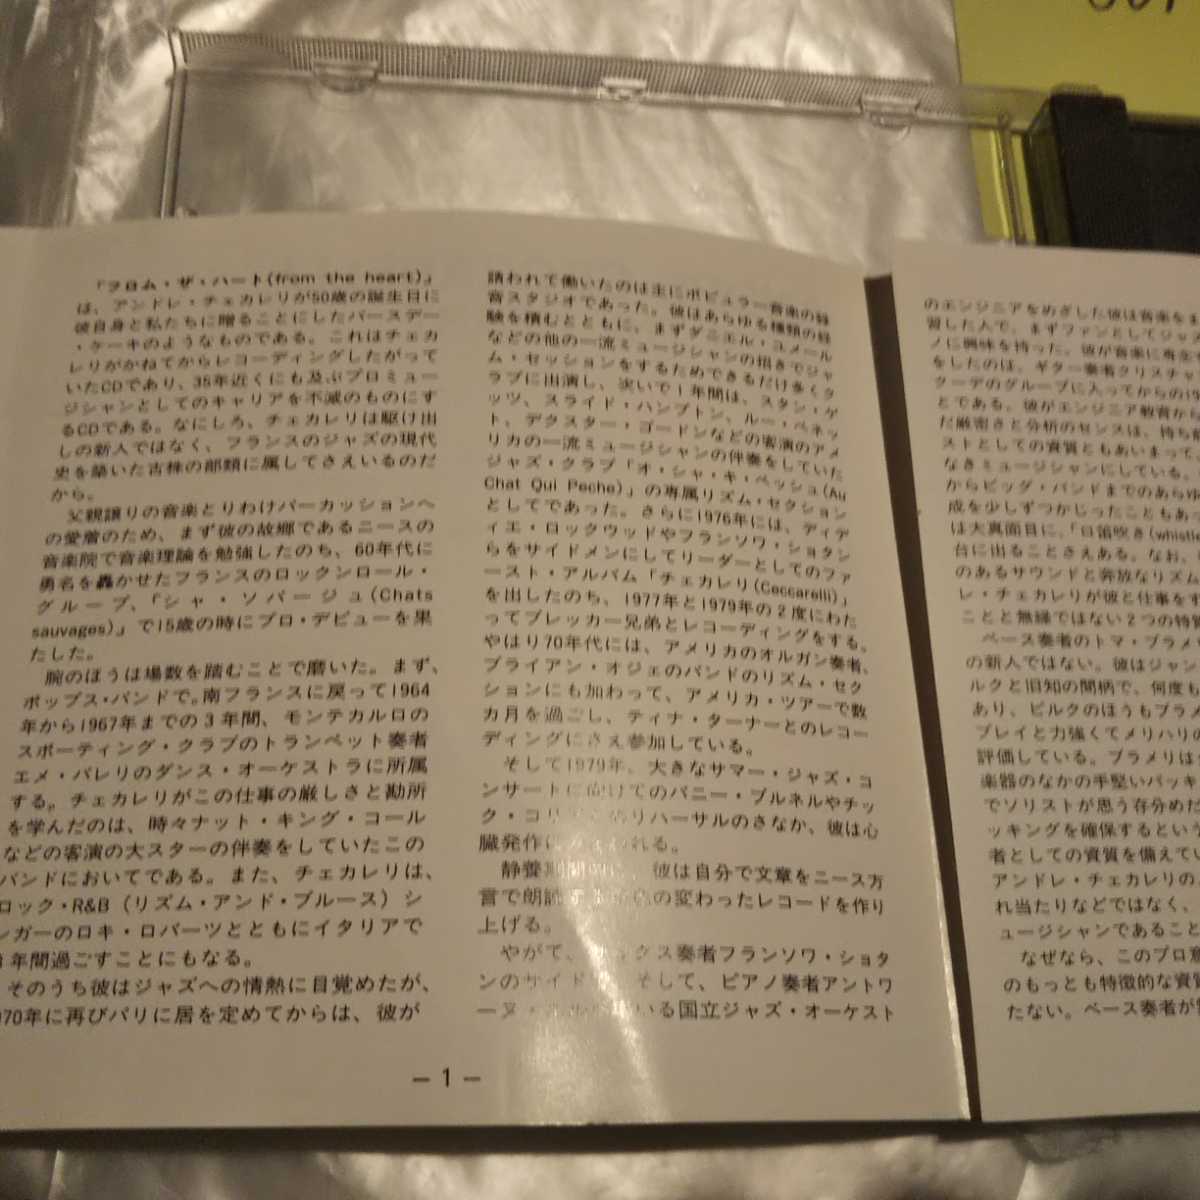 「フロム・ザ・ハート(from the heart)」
は、アンドレ・チェカレリが50歳の誕生日に
彼自身と私たちに贈ることにしたバースデー
・ケーキのようなものである。これはチェカ
レリがかねてからレコーディングしたがって
いたCDであり、35年近くにも及ぶプロミュー
ジシャンとしてのキャリアを不滅のものにす
るCDである。なにしろ、チェカレリは駆け出
しの新人ではなく、フランスのジャズの現代
史を築いた古株の部類に属してさえいるのだ
から。
父親譲りの音楽とりわけパーカッションへ
の愛着のため、まず彼の故郷であるニースの
音楽院で音楽理論を勉強したのち、60年代に
勇名を轟かせたフランスのロックンロール・
グループ、「シャ・ソバージュ(Chats
sauvages)」で15歳の時にプロ・デビューを果
たした。
腕のほうは場数を踏むことで磨いた。まず、
ポップス・バンドで。南フランスに戻って1964
年から1967年までの3年間、モンテカルロの
スポーティング・クラブのトランペット奏者
エメ・バレリのダンス・オーケストラに所属
する。チェカレリがこの仕事の厳しさと勘所
を学んだのは、時々ナット・キング・コール
などの客演の大スターの伴奏をしていたこの
バンドにおいてである。また、チェカレリは、
ロック・R&B（リズム・アンド・ブルース）シ
ンガーのロキ・ロバーツとともにイタリアで
1年間過ごすことにもなる。
そのうち彼はジャズへの情熱に目覚めたが、
970年に再びパリに居を定めてからは、彼が
請われて働いたのは主にポピュラー音楽の録
音スタジオであった。彼はあらゆる種類の経
験を積むとともに、まずダニエル・ユメール
などの他の一流ミュージシャンの招きでジャ
ム・セッションをするためできるだけ多くク
ラブに出演し、次いで1年間は、スタン・ゲ
ッツ、スライド・ハンプトン、ルー・ベネッ
ト、デクスター・ゴードンなどの客演のアメ
リカの一流ミュージシャンの伴奏をしていた
ジャズ・クラブ「オ・シャ・キ・ペッシュ(Au
Chat Qui Peche)」の専属リズム・セクション
としてであった。さらに1976年には、ディデ
ィエ・ロックウッドやフランソワ・ショタン
らをサイドメンにしてリーダーとしてのファ
ースト・アルバム「チェカレリ(Ceccarelli)」
を出したのち、1977年と1979年の2度にわた
ってブレッカー兄弟とレコーディングをする。
やはり70年代には、アメリカのオルガン奏者、
ブライアン・オジェのバンドのリズム・セク
ションにも加わって、アメリカ・ツアーで数
カ月を過ごし、ティナ・ターナーとのレコー
ディングにさえ参加している。
そして1979年、大きなサマー・ジャズ・コ
ンサートに向けてのバニー・ブルネルやチッ
ク・コリアとのリハーサルのさなか、彼は心
臓発作に われる。
静養期間 彼は自分で文章をニース方
言で朗読 の変わったレコードを作り
上げる。
やがて、 ックス奏者フランソワ・ショタ
ンのサイド そして、ピアノ奏者アントワ
ーヌ・ いる国立ジャズ・オーケスト
— 1 —
のエンジニアをめざした彼は音楽をま
習した人で、まずファンとしてジャズ
ノに興味を持った。彼が音楽に専念
をしたのは、ギター奏者クリスチャ
クーデのグループに入ってからの19
とである。彼がエンジニア教育から
だ厳密さと分析のセンスは、持ち前
ストとしての資質ともあいまって、
なきミュージシャンにしている。
からビッグ・バンドまでのあらゆ
成を少しずつかじったこともあっ
は大真面目に、「口笛吹き(whistle
台に出ることさえある。なお、
のあるサウンドと奔放なリズム
レ・チェカレリが彼と仕事をす
ことと無縁ではない2つの特質
ベース奏者のトマ・ブラメリ
の新人ではない。彼はジャン
ルクと旧知の間柄で、何度も
あり、ピルクのほうもブラメ
プレイと力強くてメリハリの
評価している。ブラメリは
楽器のなかの手堅いバッキ
でソリストが思う存分めだ
ッキングを確保するという
者としての資質を備えてい
アンドレ・チェカレリの人
れ当たりなどではなく、
ュージシャンであること
なぜなら、このプロ意
のもっとも特徴的な資質
たない。ベース奏者が